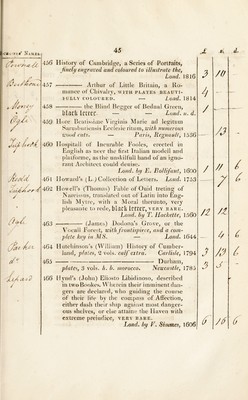 45
£ s. d.
456 History of Cumbridge, a Series of Portraits,
finely engraved and coloured to illustrate the,
Lond. 1816 3 10
457 ——— Arthur of Little Britain, a Ro-
mance of Chivalry, WITH PLATES BEAUTI-
FULLY COLOURED. — Lond. 1814 4
458 ——— the Blind Begger of Bednal Green,
black letter. — Lond. n. d. 1
459 Hore Beatissime Virginis Marie ad legitimum
Parisiensis Ecclesie ritum, with numerous
wood cuts. — Paris, Regnault, 1536 13
460 Hospitall of Incurable Fooles, erected in
English as neer the first Italian modell and
platforme, as the unskilfull hand of an igno-
rant Architect could devise.
Lond. by E. Bollifant, 1600 1 11 6
461 Howard's (L.) Collection of Letters. Lond. 1753 7 6
462 Howell's (Thomas) Fable of Ouid treting of
Narcissus, translated out of Latin into Eng-
lish Mytre, with a Moral therunto, very
pleasante to rede, black letter, VERY RARE.
Lond. by T. Hackette, 1560 12 12
463 ——— (James) Dodona's Grove, or the
Vocall Forest, with frontispiece, and a com-
plete key in MS. — Lond. 1644 4 6
464 Hutchinson's (William) History of Cumber-
land, plates, 2 vols. calf extra. Carlisle, 1794 3 13 6
465 ——— Durham,
plates, 3 vols. h. b. morocco. Newcastle, 1785 3 5
466 Hynd's (John) Eliosto Libidinoso, described
in two Bookes. Wherein their imminent dan-
gers are declared, who guiding the course
of their life by the compass of Affection,
either dash their ship against most danger-
ous shelves, or else attaine the Haven with
extreme prejudice, VERY RARE.
Lond. by V. Simmes, 1606 6 16 6